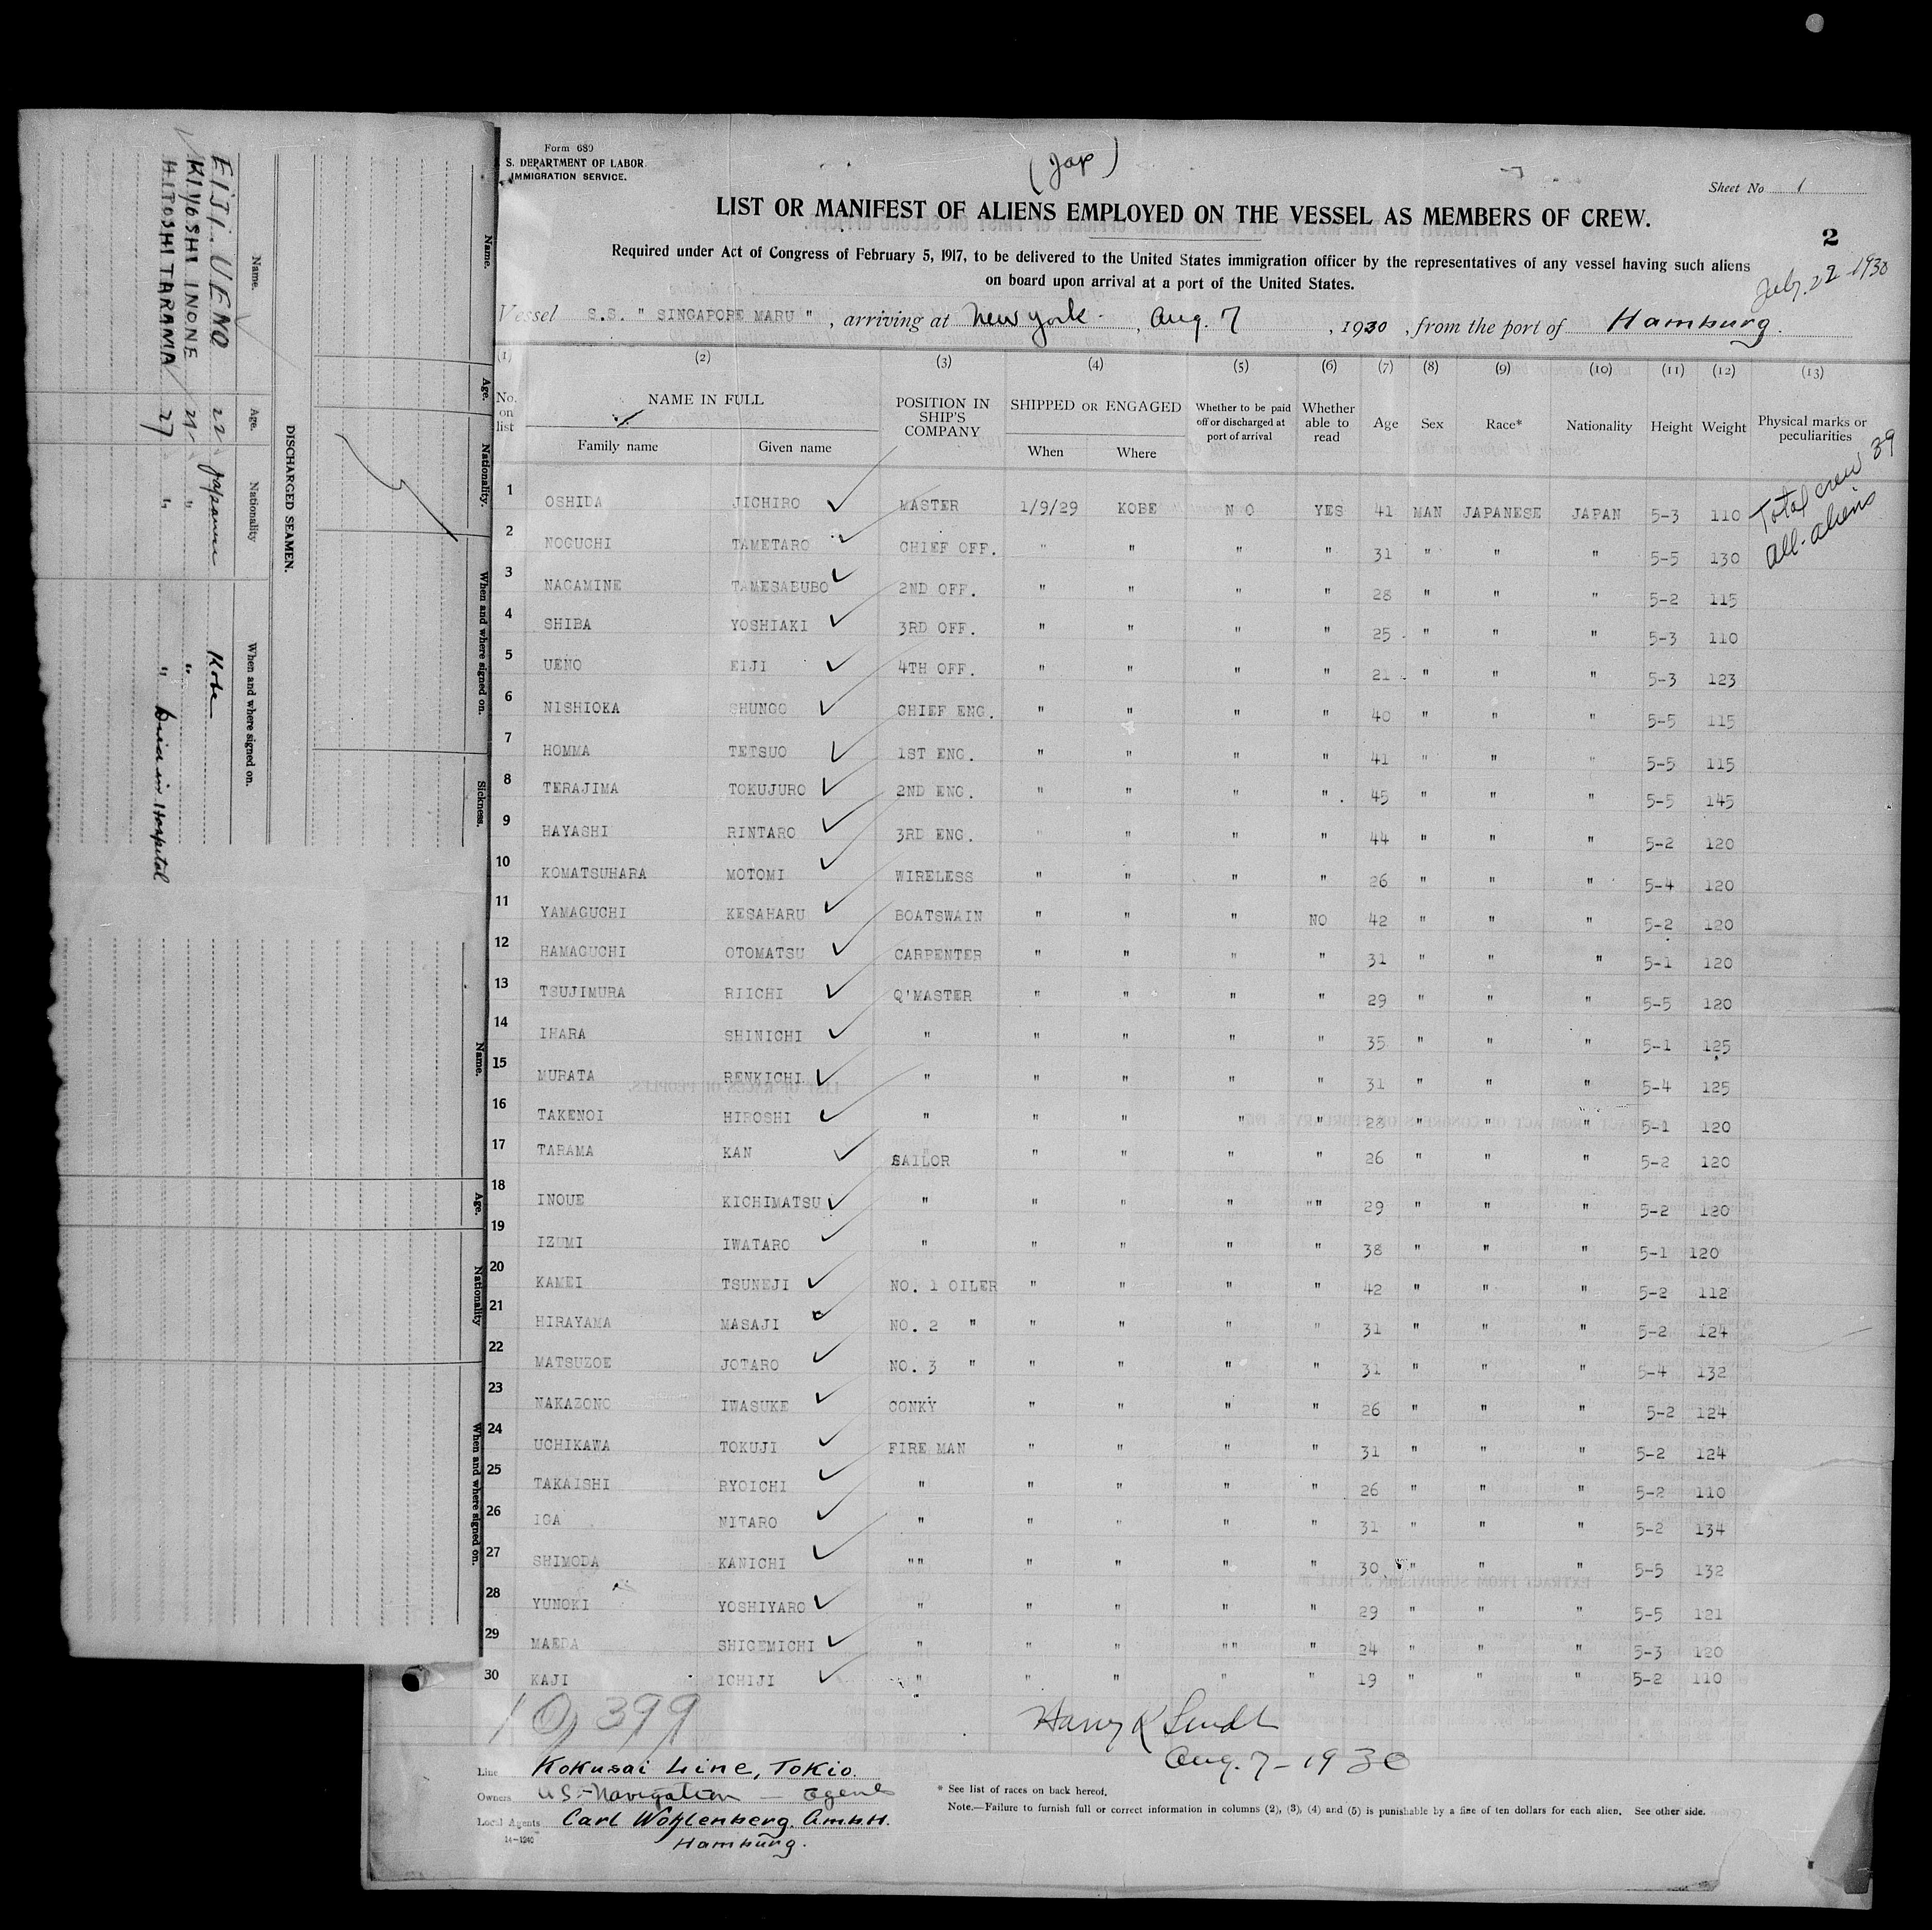 Form 689
S. DEPARTMENT OF LABOR
IMMIGRATION SERVICE.
(Jap)
Sheet No 1
LIST OR MANIFEST OF ALIENS EMPLOYED ON THE VESSEL AS MEMBERS OF CREW.
2
Required under Act of Congress of February 5, 1917, to be delivered to the United States immigration officer by the representatives of any vessel having such aliens
on board upon arrival at a port of the United States.
July. 22-1930
Vessel S.S. " SINGAPORE MARU ", arriving at New York, Aug. 7, 1930, from the port of Hamburg.
(1) (2) (3) (4) (5) (6) (7) (8) (9) (10) (11) (12) (13)
No. on list NAME IN FULL POSITION IN SHIP'S COMPANY SHIPPED OR ENGAGED Whether to be paid off or discharged at port of arrival Whether able to read Age Sex Race* Nationality Height Weight Physical marks or peculiarities
Family name Given name When Where
Total crew 39
all-aliens
1 OSHIDA JICHIRO MASTER 1/9/29 KOBE NO YES 41 MAN JAPANESE JAPAN 5-3 110
2 NOGUCHI TAMETARO CHIEF OFF. " " " " 31 " " " 5-5 130
3 NAGAMINE TAMESABUBO 2ND OFF. " " " " 28 " " " 5-2 115
4 SHIBA YOSHIAKI 3RD OFF. " " " " 25 " " " 5-3 110
5 UENO EIJI 4TH OFF. " " " " 21 " " " 5-3 123
6 NISHIOKA SHUNGO CHIEF ENG. " " " " 40 " " " 5-5 115
7 HOMMA TETSUO 1ST ENG. " " " " 41 " " " 5-5 115
8 TERAJIMA TOKUJURO 2ND ENG. " " " " 45 " " " 5-5 145
9 HAYASHI RINTARO 3RD ENG. " " " " 44 " " " 5-2 120
10 KOMATSUHARA MOTOMI WIRELESS " " " " 26 " " " 5-4 120
11 YAMAGUCHI KESAHARU BOATSWAIN " " " NO 42 " " " 5-2 120
12 HAMAGUCHI OTOMATSU CARPENTER " " " " 31 " " " 5-1 120
13 TSUJIMURA RIICHI Q'MASTER " " " " 29 " " " 5-5 120
14 IHARA SHINICHI " " " " " 35 " " " 5-1 125
15 MURATA RENKICHI " " " " " 31 " " " 5-4 125
16 TAKENOI HIROSHI " " " " " 28 " " " 5-1 120
17 TARAMA KAN SAILOR " " " " 26 " " " 5-2 120
18 INOUE KICHIMATSU " " " " "" 29 " " " 5-2 120
19 IZUMI IWATARO " " " " " 38 " " " 5-1 120
20 KAMEI TSUNEJI NO. 1 OILER " " " " 42 " " " 5-2 112
21 HIRAYAMA MASAJI NO. 2 " " " " " 31 " " " 5-2 124
22 MATSUZOE JOTARO NO. 3 " " " " " 31 " " " 5-4 132
23 NAKAZONO IWASUKE CONKY " " " " 26 " " " 5-2 124
24 UCHIKAWA TOKUJI FIRE MAN " " " " 31 " " " 5-2 124
25 TAKAISHI RYOICHI " " " " " 26 " " " 5-2 110
26 IGA NITARO " " " " " 31 " " " 5-2 134
27 SHIMODA KANICHI "" " " " " 30 " " " 5-5 132
28 YUNOKI YOSHIYARO " " " " " 29 " " " 5-5 121
29 MAEDA SHIGEMICHI " " " "" " 24 " " " 5-3 120
30 KAJI ICHIJI " " " " " 19 " " " 5-2 110
10,399
Harry K
Aug. 7-1930
Line Kokusai Line, Tokio.
Owners U.S. Navigation — Agents
Local Agents Carl Wohlenberg. G.m.b.H.
Hamburg.
14-1240
* See list of races on back hereof.
Note.—Failure to furnish full or correct information in columns (2), (3), (4) and (5) is punishable by a fine of ten dollars for each alien. See other side.
Name. Age. Nationality. When and where signed on. Sickness.
DISCHARGED SEAMEN.
Name. Age. Nationality When and where signed on.
EIJI. UENO 22 Japanese Kobe
KIYOSHI INONE 21 " "
HITOSHI TARAMA 27 " " Died in Hospital
Name. Age. Nationality When and where signed on.